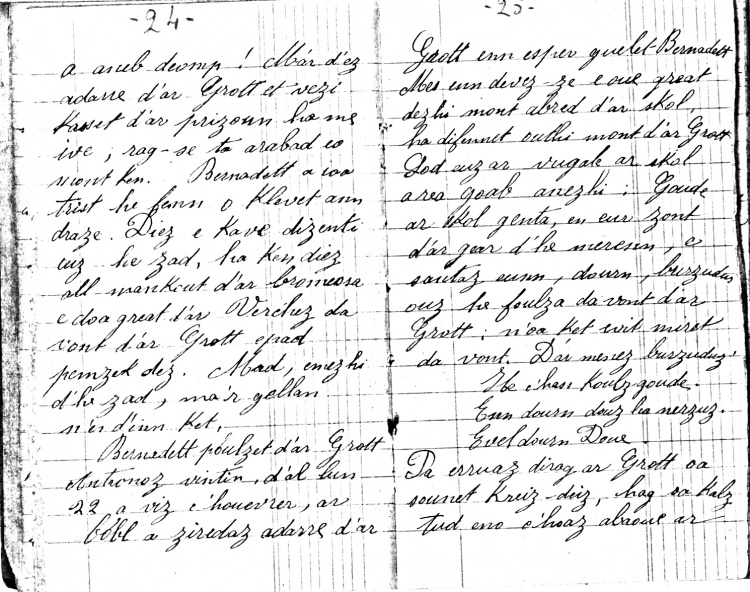 -24-
a aneb deomp ! Mar d'ez
adarre d'ar Grott et vezi
Kasset d'ar prizoun ha me
ive ; rag-se ta arabad eo
mont Ken. Bernadett a ioa
trist he fenn o Klevet ann
draze. Diez e Kave dizenti
euz he zad, ha Ken diez
all mankout d'ar bromeosa
e doa great d'ar Verc'hez da
vont d'ar Grott epad
pemzek dez. Mad, emezhi
d'he zad, ma'r gellan
n'en d'inn Ket.
Bernadett poulzet d'ar Grott
Antronoz vintin, d'al lun
22 a viz c'houevrer, ar
bobl a ziredaz adarre d'ar
-25-
Grott enn esper guelet Bernadett
Mes eun devez-ze e oue great
dezhi mont abred d'ar skol,
ha difennet outhi mont d'ar Grott
God euz ar vugale ar skol
area goab anezhi : Goude
ar skol genta, en eur zont
d'ar gear d'he merenn, e
santaz eunn, dourn, burzudus
ouz he foulza da vont d'ar
Grott ; n'oa Ket evit miret
da vont. D'ar menez burzuduz'
He c'hass Koulzgoude.
Eun dourn douz ha nerzuz.
Evel dourn Doue.
Pa erruaz dirag ar Grott oa
sounet Kreiz-deiz, hag oa Kalz
tud eno c'hoaz abaoue ar